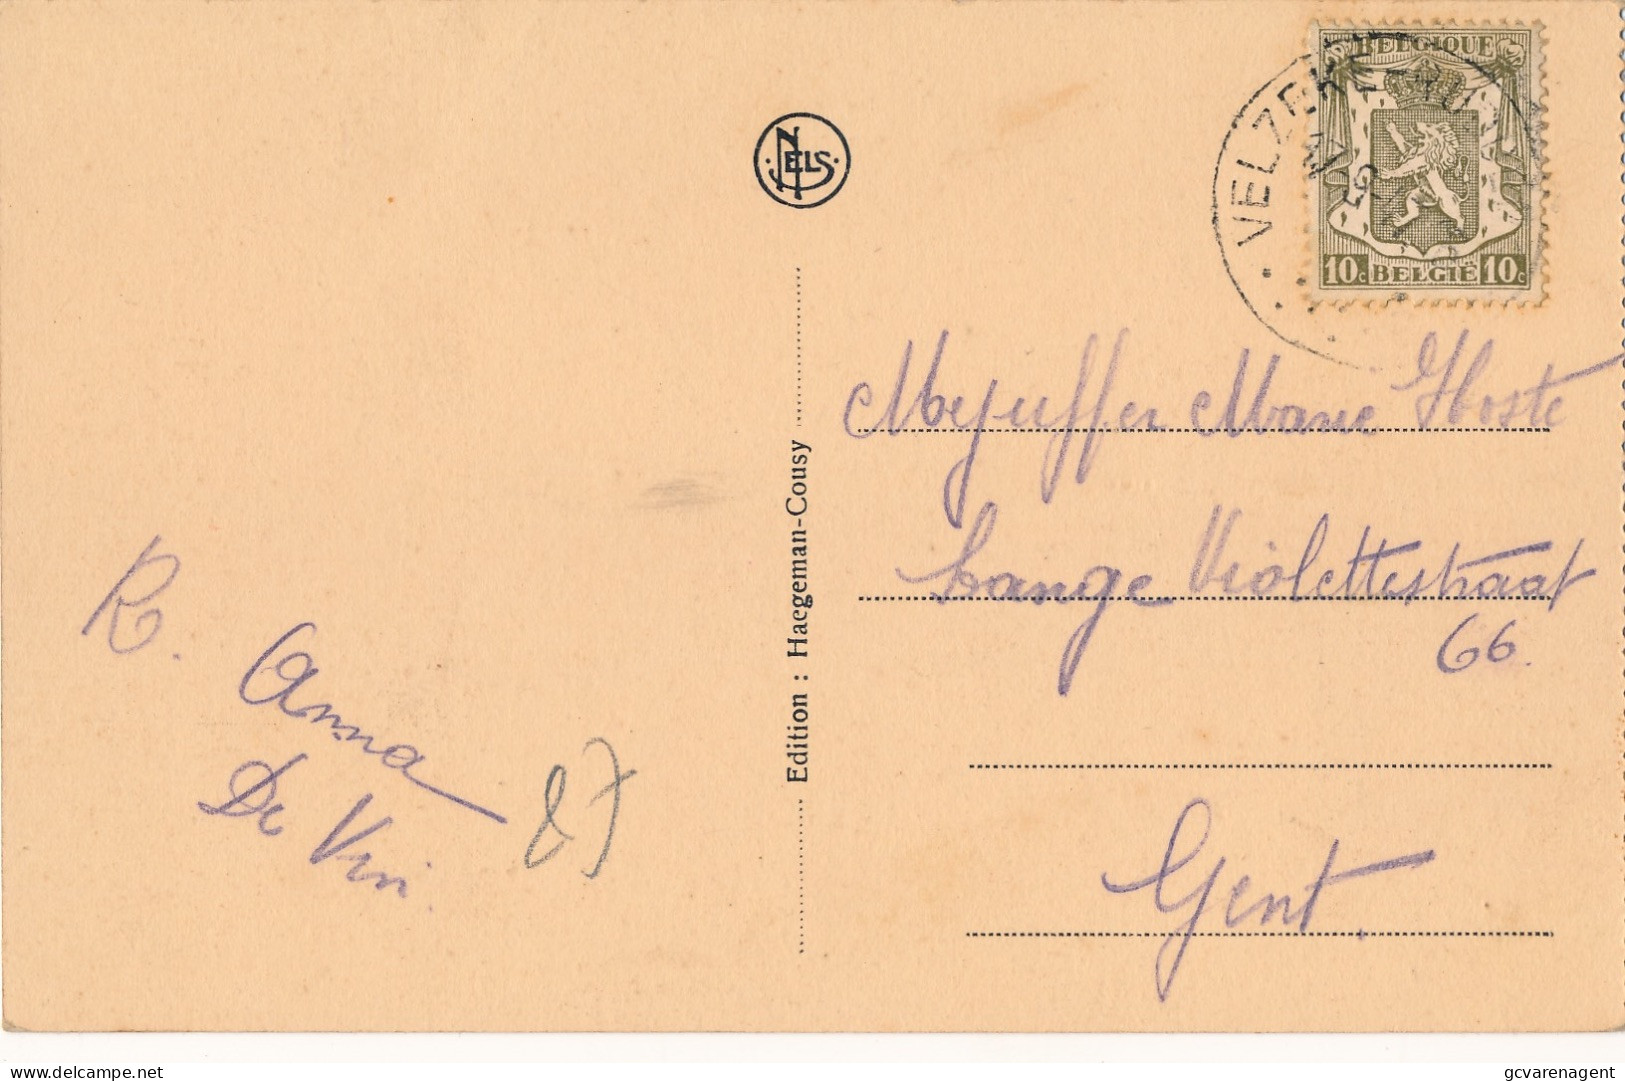 BELGIQUE
10c BELGIË 10c
VELZEKE-RU
NELS
Edition : Haegeman-Cousy
Mejuffer Marie Hoste
Lange Violettestraat
66.
Gent.
R. Anna
De Vri
87
www.delcampe.net
gcvarenagent